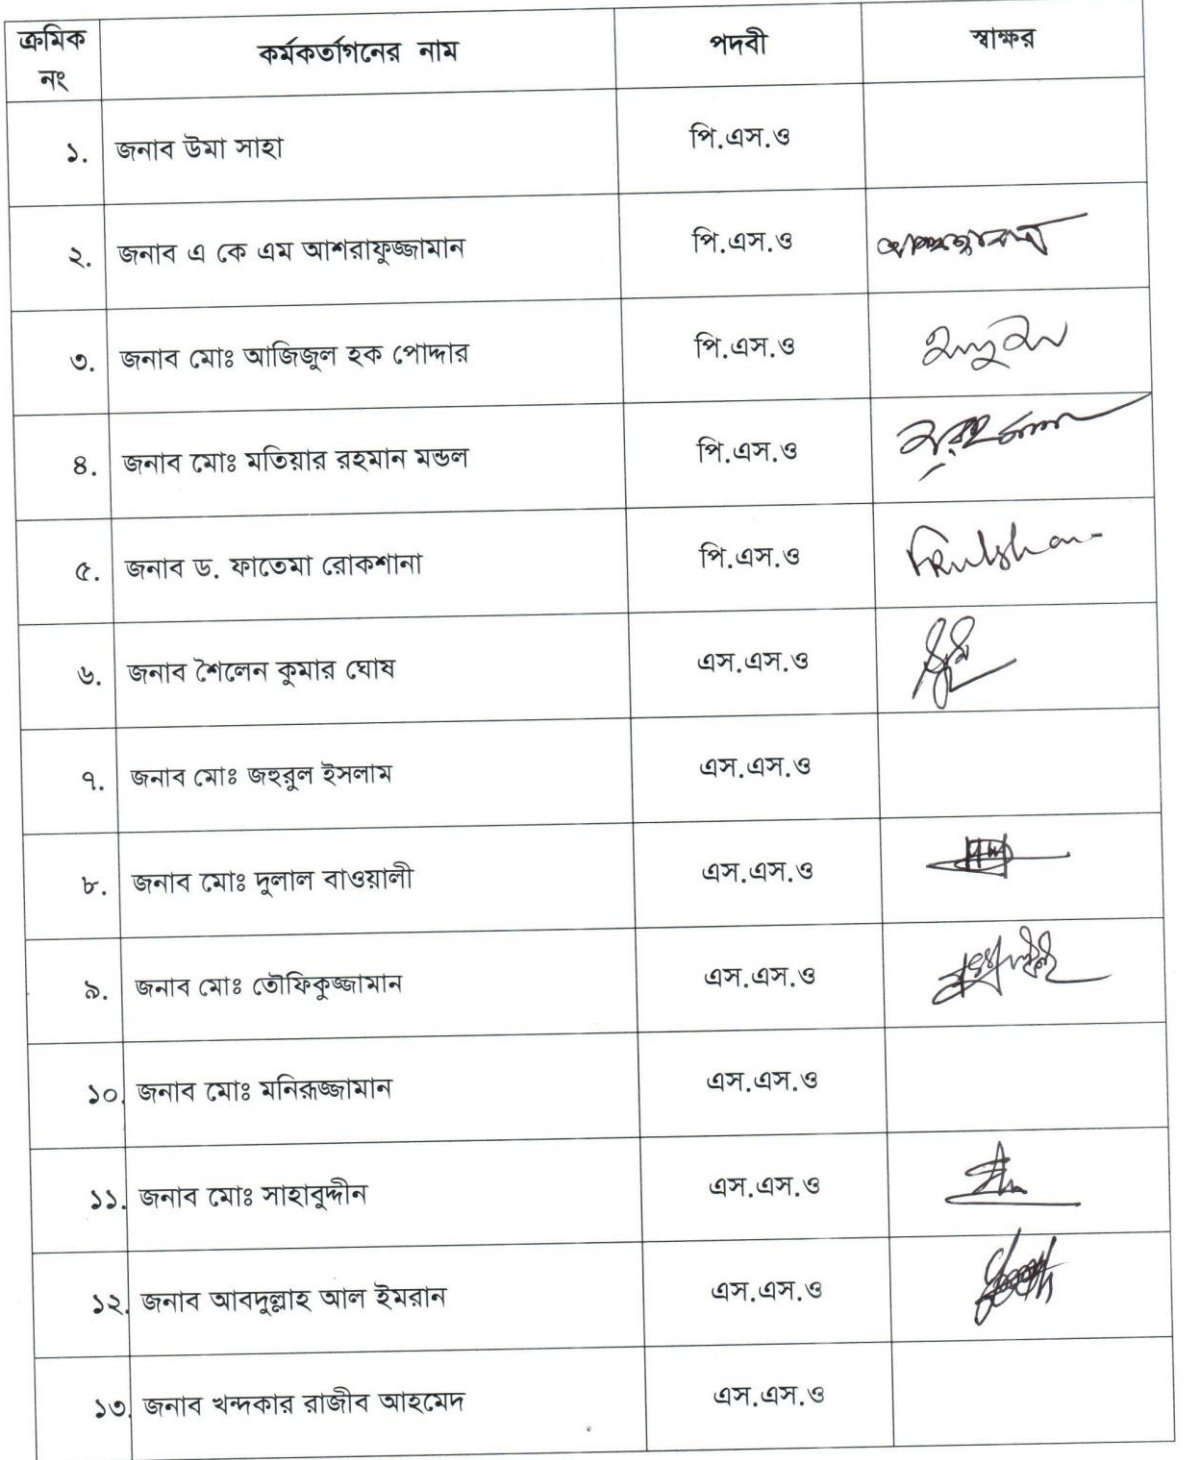 ক্রমিক নং কর্মকর্তাগনের নাম পদবী স্বাক্ষর
১. জনাব উমা সাহা পি.এস.ও
২. জনাব এ কে এম আশরাফুজ্জামান পি.এস.ও
৩. জনাব মোঃ আজিজুল হক পোদ্দার পি.এস.ও
৪. জনাব মোঃ মতিয়ার রহমান মন্ডল পি.এস.ও
৫. জনাব ড. ফাতেমা রোকশানা পি.এস.ও
৬. জনাব শৈলেন কুমার ঘোষ এস.এস.ও
৭. জনাব মোঃ জহুরুল ইসলাম এস.এস.ও
৮. জনাব মোঃ দুলাল বাওয়ালী এস.এস.ও
৯. জনাব মোঃ তৌফিকুজ্জামান এস.এস.ও
১০. জনাব মোঃ মনিরুজ্জামান এস.এস.ও
১১. জনাব মোঃ সাহাবুদ্দীন এস.এস.ও
১২. জনাব আবদুল্লাহ আল ইমরান এস.এস.ও
১৩. জনাব খন্দকার রাজীব আহমেদ এস.এস.ও